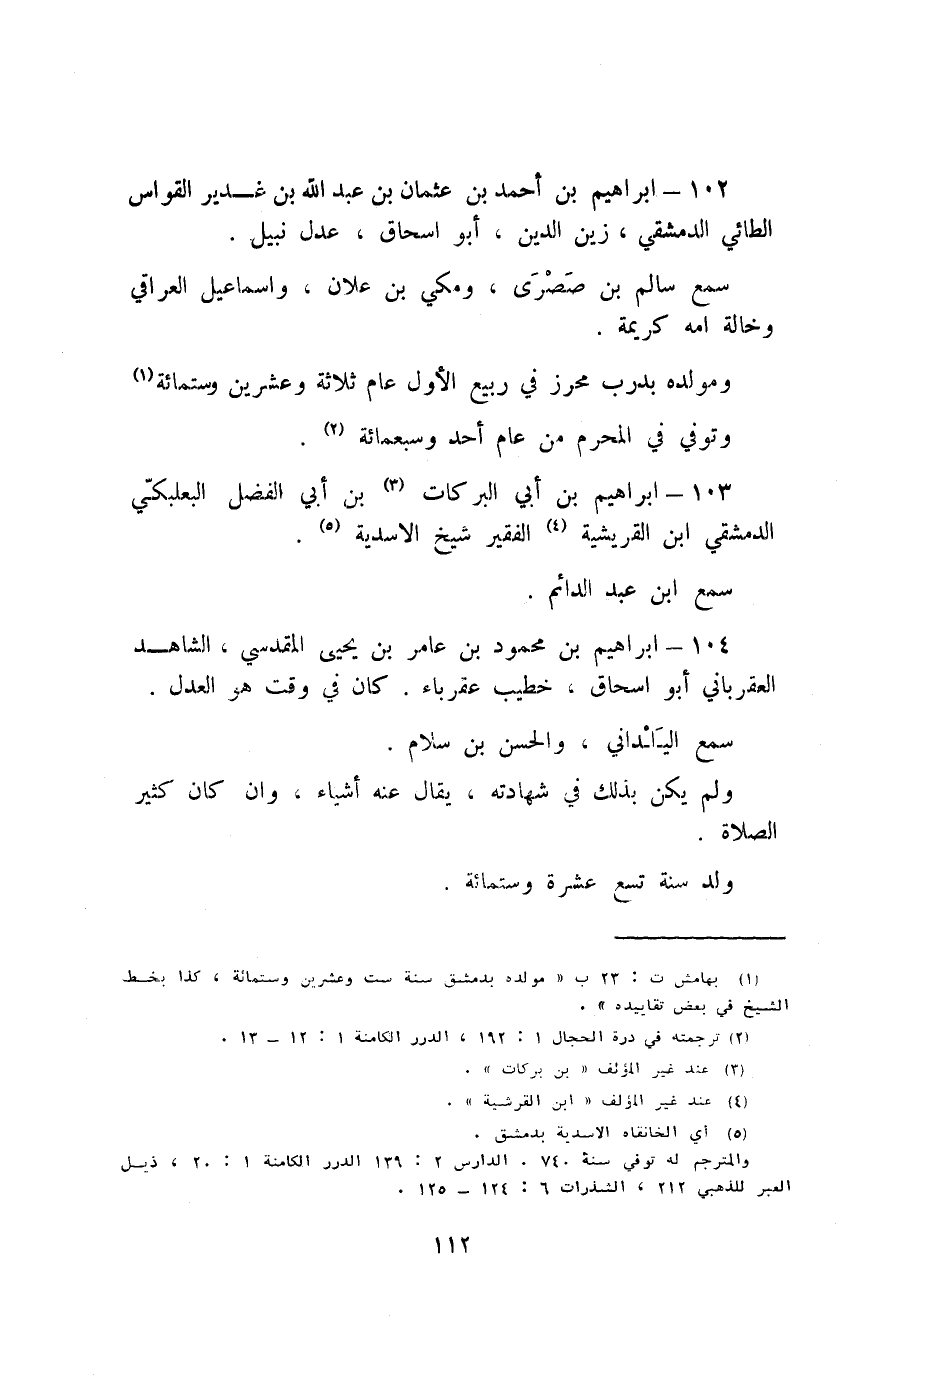 ١٠٢ – ابراهيم بن أحمد بن عثمان بن عبد الله بن غـدير القواس
الطائي الدمشقي ، زين الدين ، أبو اسحاق ، عدل نبيل .
سمع سالم بن صَصْرَى ، ومكي بن علان ، واسماعيل العراقي
وخالة امه كريمة .
ومولده بدرب محرز في ربيع الأول عام ثلاثة وعشرين وستمائة (١)
وتوفي في المحرم من عام أحد وسبعمائة (٢) .
١٠٣ – ابراهيم بن أبي البركات (٣) بن أبي الفضل البعلبكّي
الدمشقي ابن القريشية (٤) الفقير شيخ الاسدية (٥) .
سمع ابن عبد الدائم .
١٠٤ – ابراهيم بن محمود بن عامر بن يحيى المقدسي ، الشاهـد
العقرباني أبو اسحاق ، خطيب عقرباء . كان في وقت هو العدل .
سمع اليَلْداني ، والحسن بن سلام .
ولم يكن بذلك في شهادته ، يقال عنه أشياء ، وان كان كثير
الصلاة .
ولد سنة تسع عشرة وستمائة .
(١) بهامش ت : ٢٣ ب « مولده بدمشق سنة ست وعشرين وستمائة ، كذا بخـط
الشيخ في بعض تقاييده » .
(٢) ترجمته في درة الحجال ١ : ١٩٢ ، الدرر الكامنة ١ : ١٢ – ١٣ .
(٣) عند غير المؤلف « بن بركات » .
(٤) عند غير المؤلف « ابن القرشية » .
(٥) أي الخانقاه الاسدية بدمشق .
والمترجم له توفي سنة ٧٤٠ . الدارس ٢ : ١٣٩ الدرر الكامنة ١ : ٢٠ ، ذيـل
العبر للذهبي ٢١٢ ، الشذرات ٦ : ١٢٤ – ١٢٥ .
١١٢